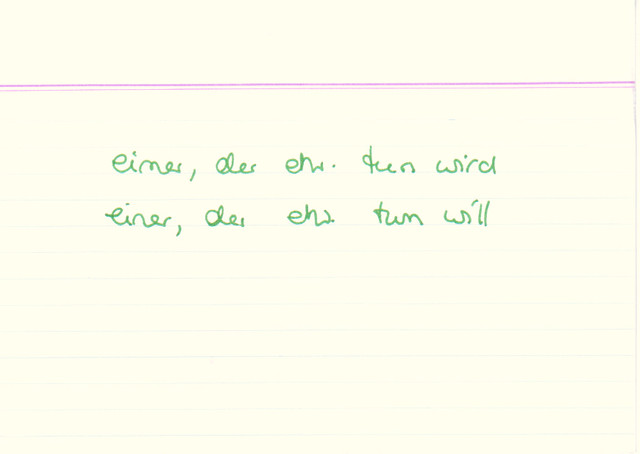 einer, der etw. tun wird
einer, der etw. tun will